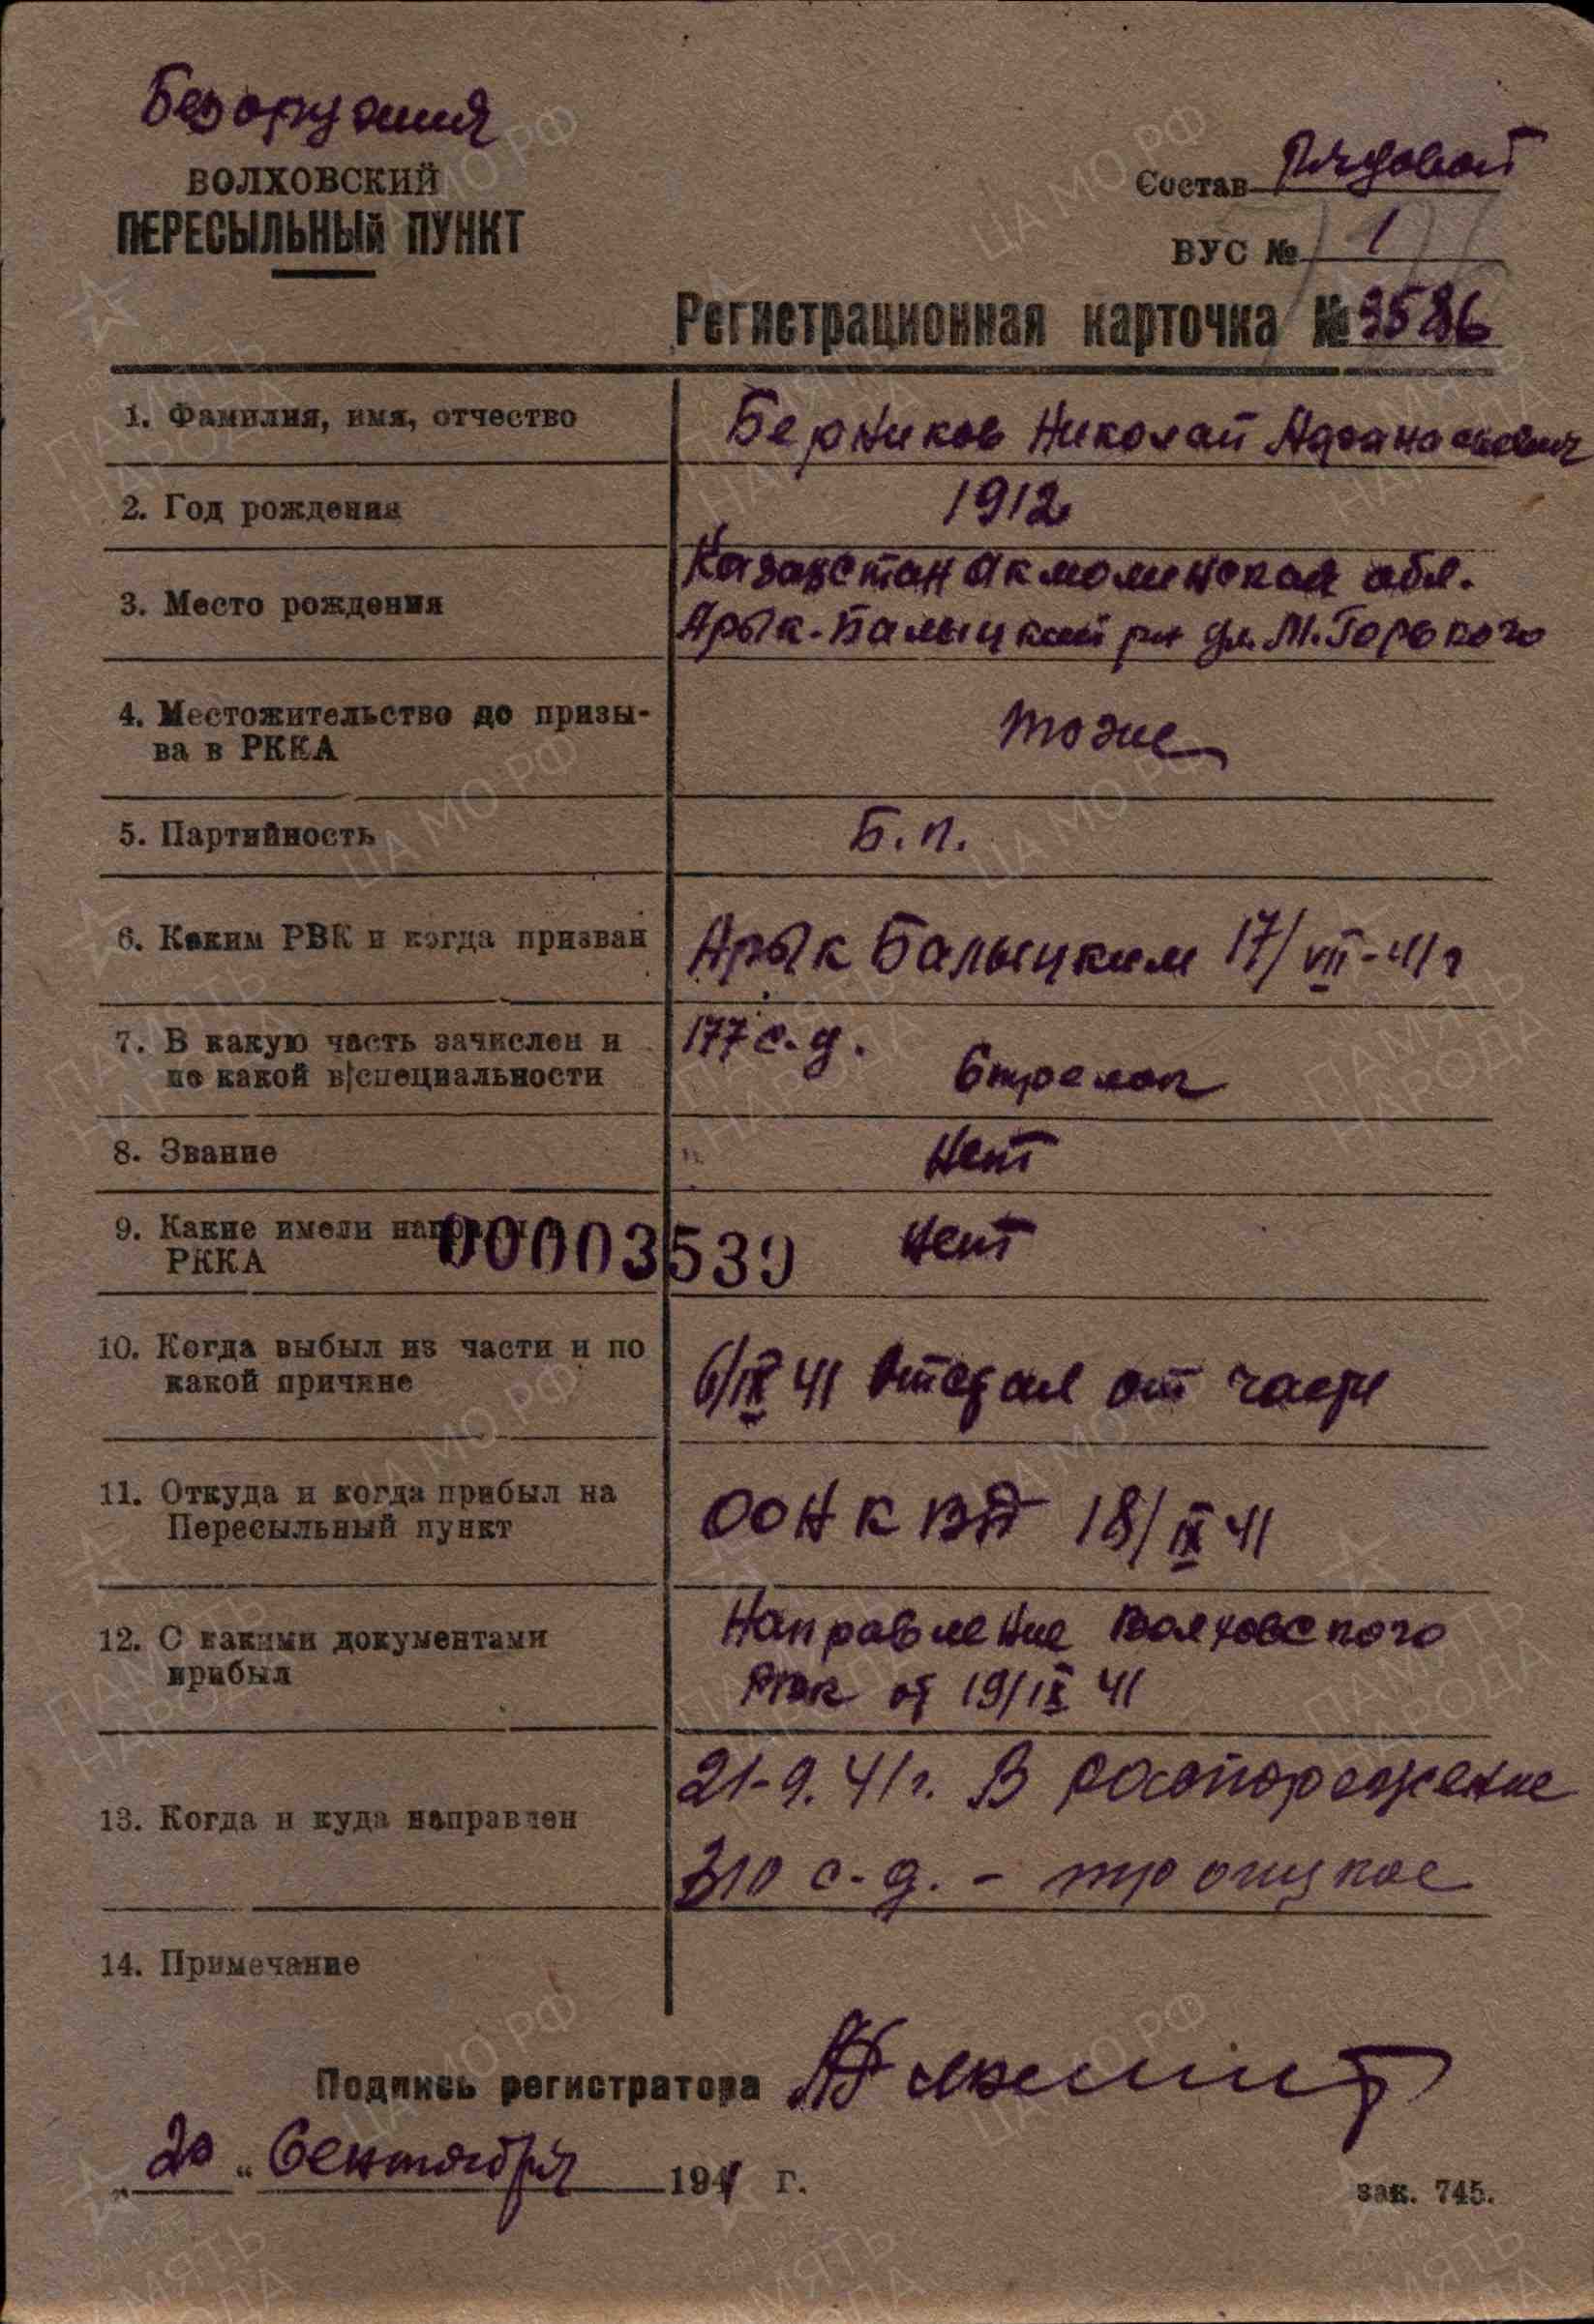 Без оружия
ВОЛХОВСКИЙ
ПЕРЕСЫЛЬНЫЙ ПУНКТ
Состав Рядовой
ВУС № 1
Регистрационная карточка № 3586
1. Фамилия, имя, отчество
Берников Николай Афанасиевич
2. Год рождения
1912
3. Место рождения
Казахстан Акмолинская обл.
Арык-Балыцкий рн ул. М. Горького
4. Местожительство до призы-
ва в РККА
тоже
5. Партийность
Б.п.
6. Каким РВК и когда призван
Арык Балыцким 17/VII-41г
7. В какую часть зачислен и
по какой в/специальности
177 с.д.
Стрелок
8. Звание
Нет
9. Какие имели награды в
РККА
Нет
00003539
10. Когда выбыл из части и по
какой причине
6/IX 41 Отстал от части
11. Откуда и когда прибыл на
Пересыльный пункт
ООНКВД 18/IX 41
12. С какими документами
прибыл
Направление Волховского
РВК от 19/IX 41
13. Когда и куда направлен
21-9.41г. В распоряжение
310 с.д. -
14. Примечание
Подпись регистратора
„20“ Сентября 1941 г.
зак. 745.
ЦА МО РФ
ПАМЯТЬ
НАРОДА